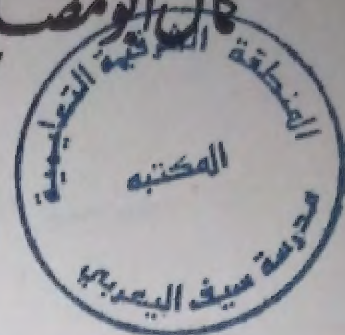 كمال أبو مصلح
المنطقة الشرقية التعليمية
المكتبه
مدرسة سيف اليعربي